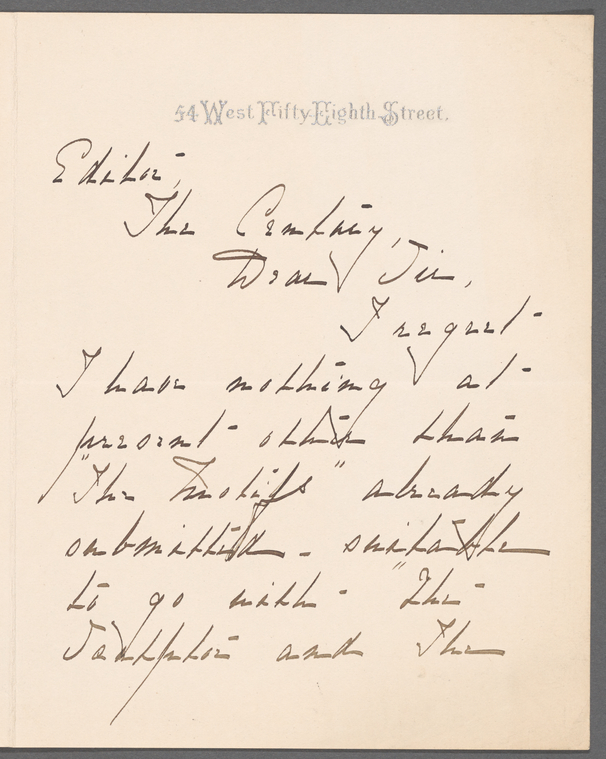 54 West Fifty Eighth Street.
Editor,
The Century,
Dear Sir,
I regret
I have nothing at
present other than
"The Motifs" already
submitted - suitable
to go with - "The
Sculptor and The